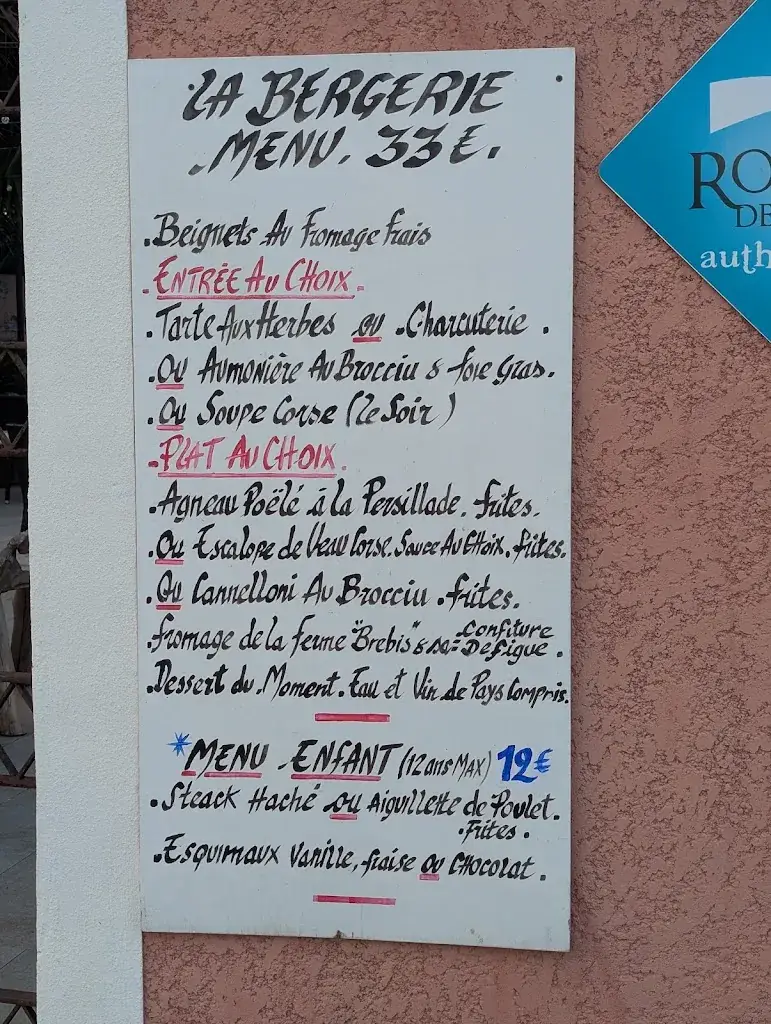 LA BERGERIE
. MENU. 33€.
. Beignets Au Fromage frais
. ENTRÉE AU CHOIX.
. Tarte Aux Herbes ou . Charcuterie .
. OU AUMONIÈRE AU BROCCIU & foie Gras.
. OU SOUPE CORSE (le Soir)
- PLAT AU CHOIX.
. Agneau Poëlé à la Persillade. frites.
. OU Escalope de Veau Corse. Sauce Au Choix. frites.
. OU Cannelloni Au Brocciu . frites.
. fromage de la ferme "Brebis" & sa Confiture De figue .
. Dessert du Moment. Eau et Vin de Pays Compris.
*MENU ENFANT (12 ans MAX) 12€
. Steack Haché ou Aiguillette de Poulet.
. Frites .
. Esquimaux Vanille, fraise ou CHOCOLAT .
RO
DE
auth